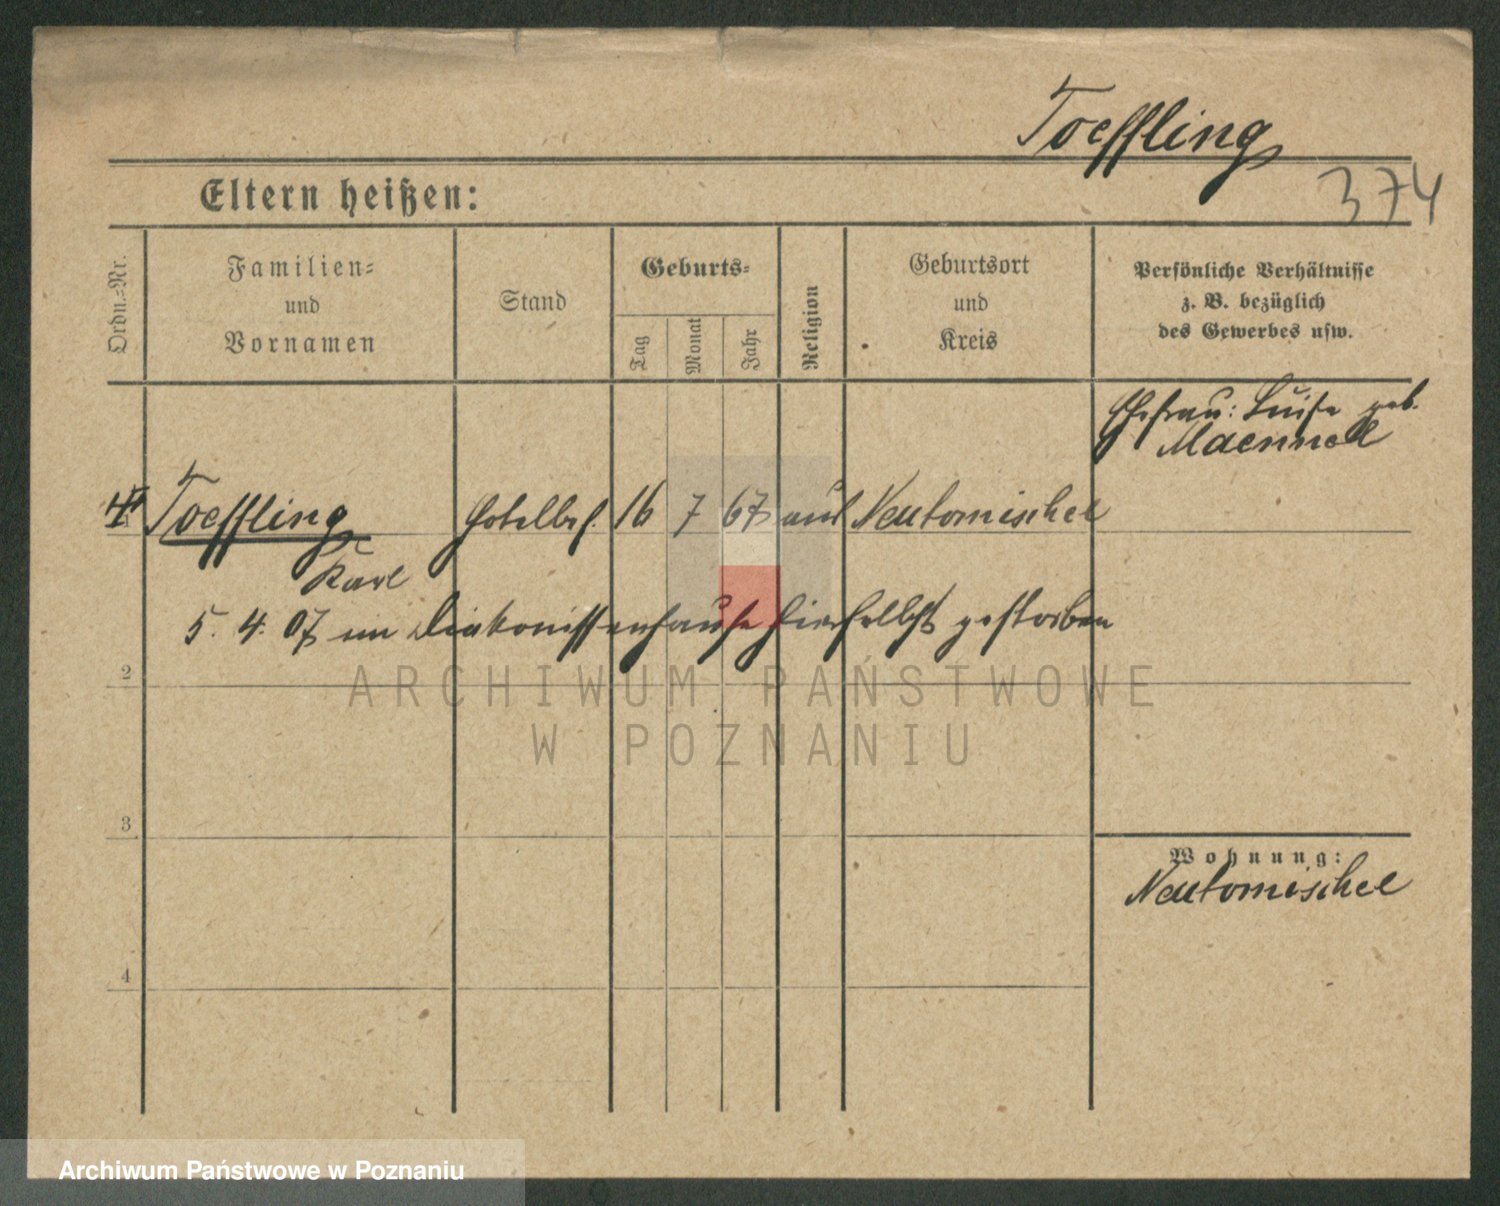 Toeffling
374
Eltern heißen:
Ordn.-Nr.
Familien-
und
Vornamen
Stand
Geburts-
Tag
Monat
Jahr
Religion
Geburtsort
und
Kreis
Persönliche Verhältnisse
z. B. bezüglich
des Gewerbes usw.
Ehefrau: Luise geb.
Toeffling Hotelbes. 16 7 67 Neutomischel
Karl
5. 4. 07 im Diakonissenhause hierselbst gestorben
2
3
4
Wohnung:
Neutomischel
ARCHIWUM PAŃSTWOWE
W POZNANIU
Archiwum Państwowe w Poznaniu